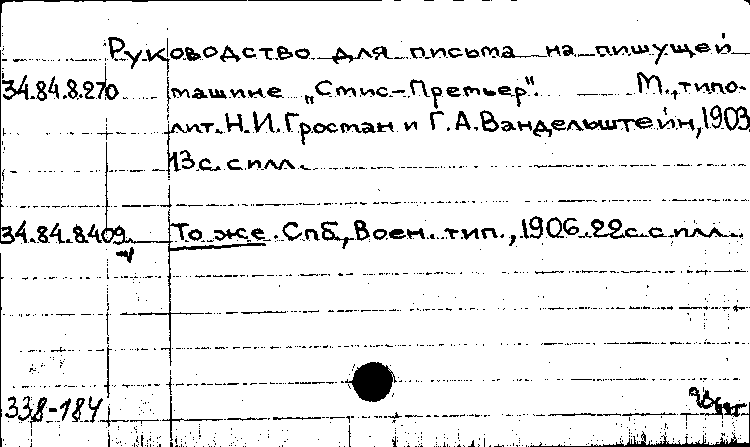 Руководство для письма на пишущей
34.84.8.270 машине „Смис-Премьер". М., типо-
лит. Н.И.Гросман и Г.А.Вандельштейн, 1903
13 с. с илл.
34.84.8.409 То же. Спб, Воен. тип., 1906. 22 с. с илл.
338-184